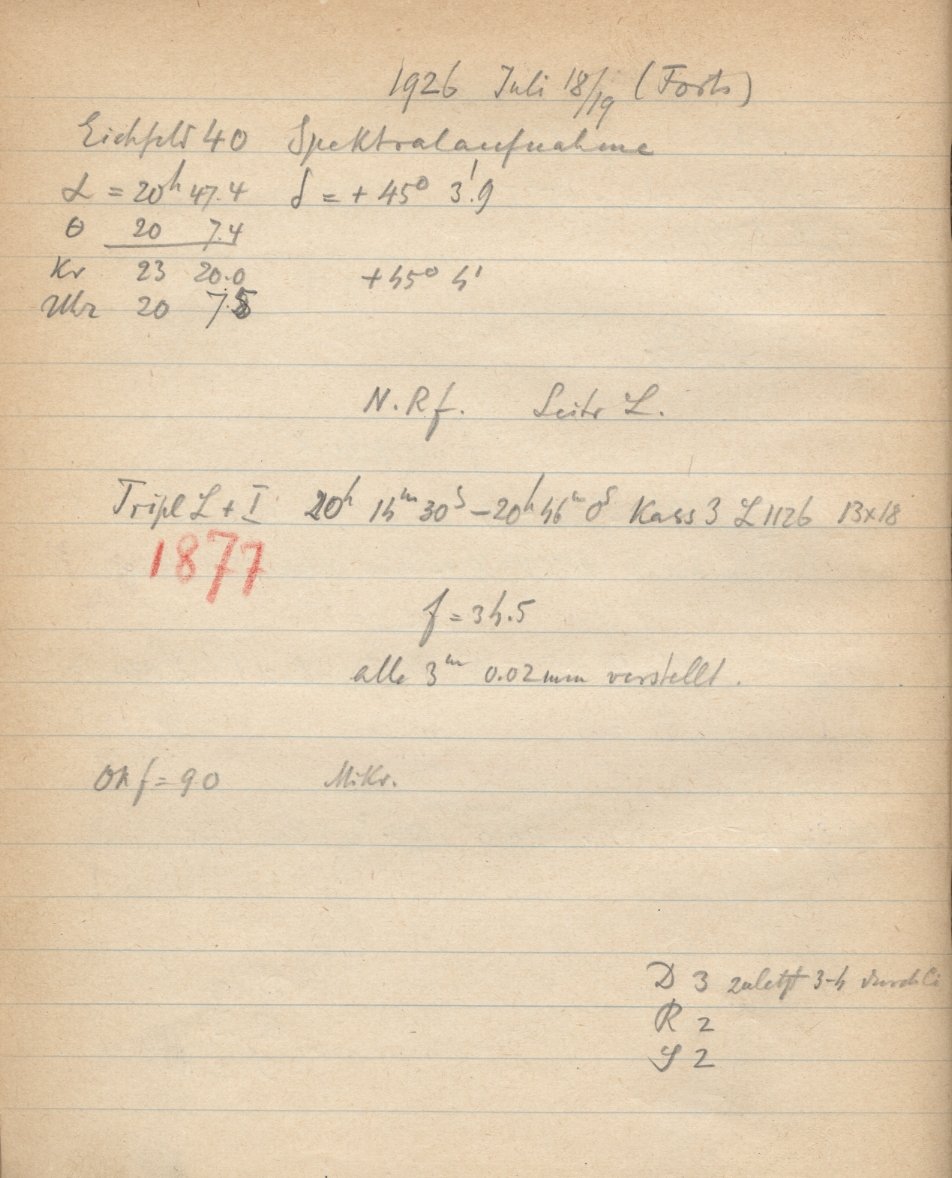 1926 Juli 18/19 (Forts)
Eichfeld 40 Spektralaufnahme
α = 20h 47.4 δ = + 45° 3'.9
θ 20 7.4
Kr 23 20.0 +45° 4'
Uhr 20 7.5
N.R.f. Seite L.
Tripl L + I 20h 14m 30s – 20h 46m 0s Kass 3 L 1126 13x18
1877
f = 34.5
alle 3m 0.02 mm verstellt.
Ok f = 90 Mikr.
D 3 zuletzt 3-4
R 2
S 2